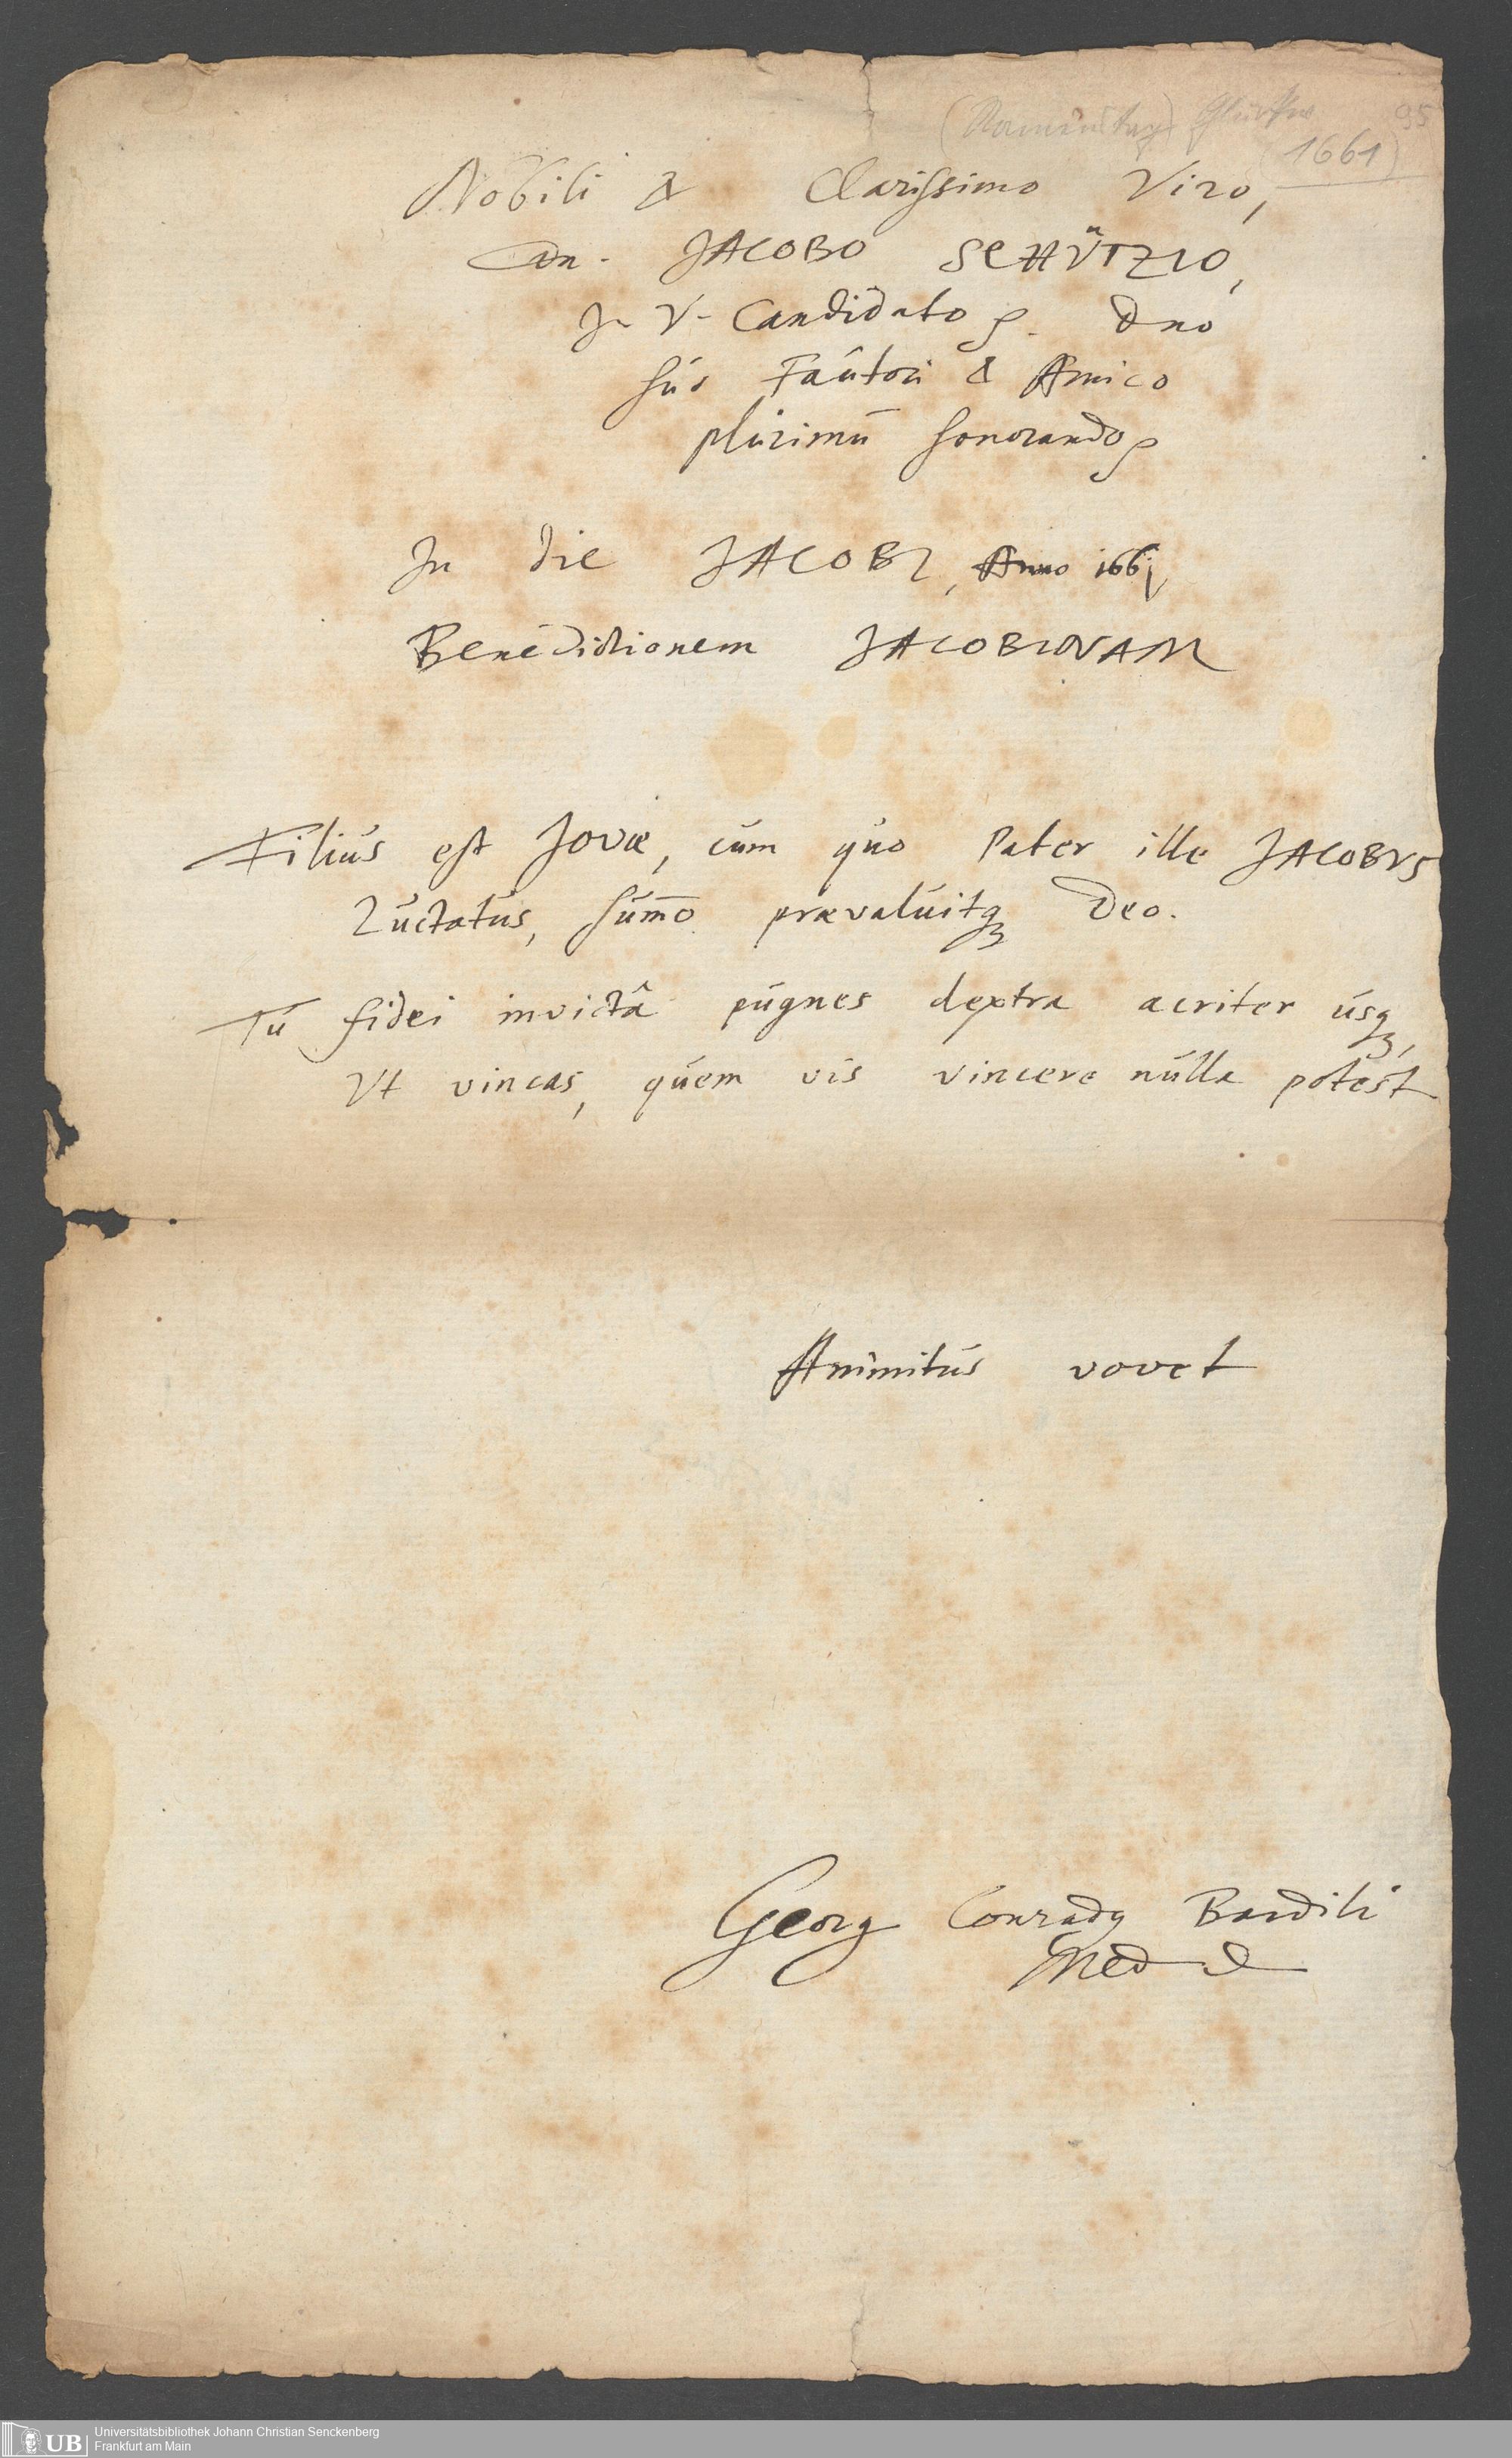 (Namenstag) Glückw. 95
(1661)
Nobili & Clarissimo Viro,
Dn. JACOBO SCHÜTZIO,
J. V. Candidato p. Dno
suo Fautori & Amico
plurimū honorando p
In die JACOBI, Anno 1661
Benedictionem JACOBINAM
Filius est Jovæ, cum quo Pater ille JACOBVS
Luctatus, sum̄o prævaluitq₃ Deo.
Tu fidei invictâ pugnes dextra acriter usq₃,
Vt vincas, quem vis vincere nulla potest
Animitus vovet
Georg Conradꝰ Bardili
Med D
UB Universitätsbibliothek Johann Christian Senckenberg
Frankfurt am Main